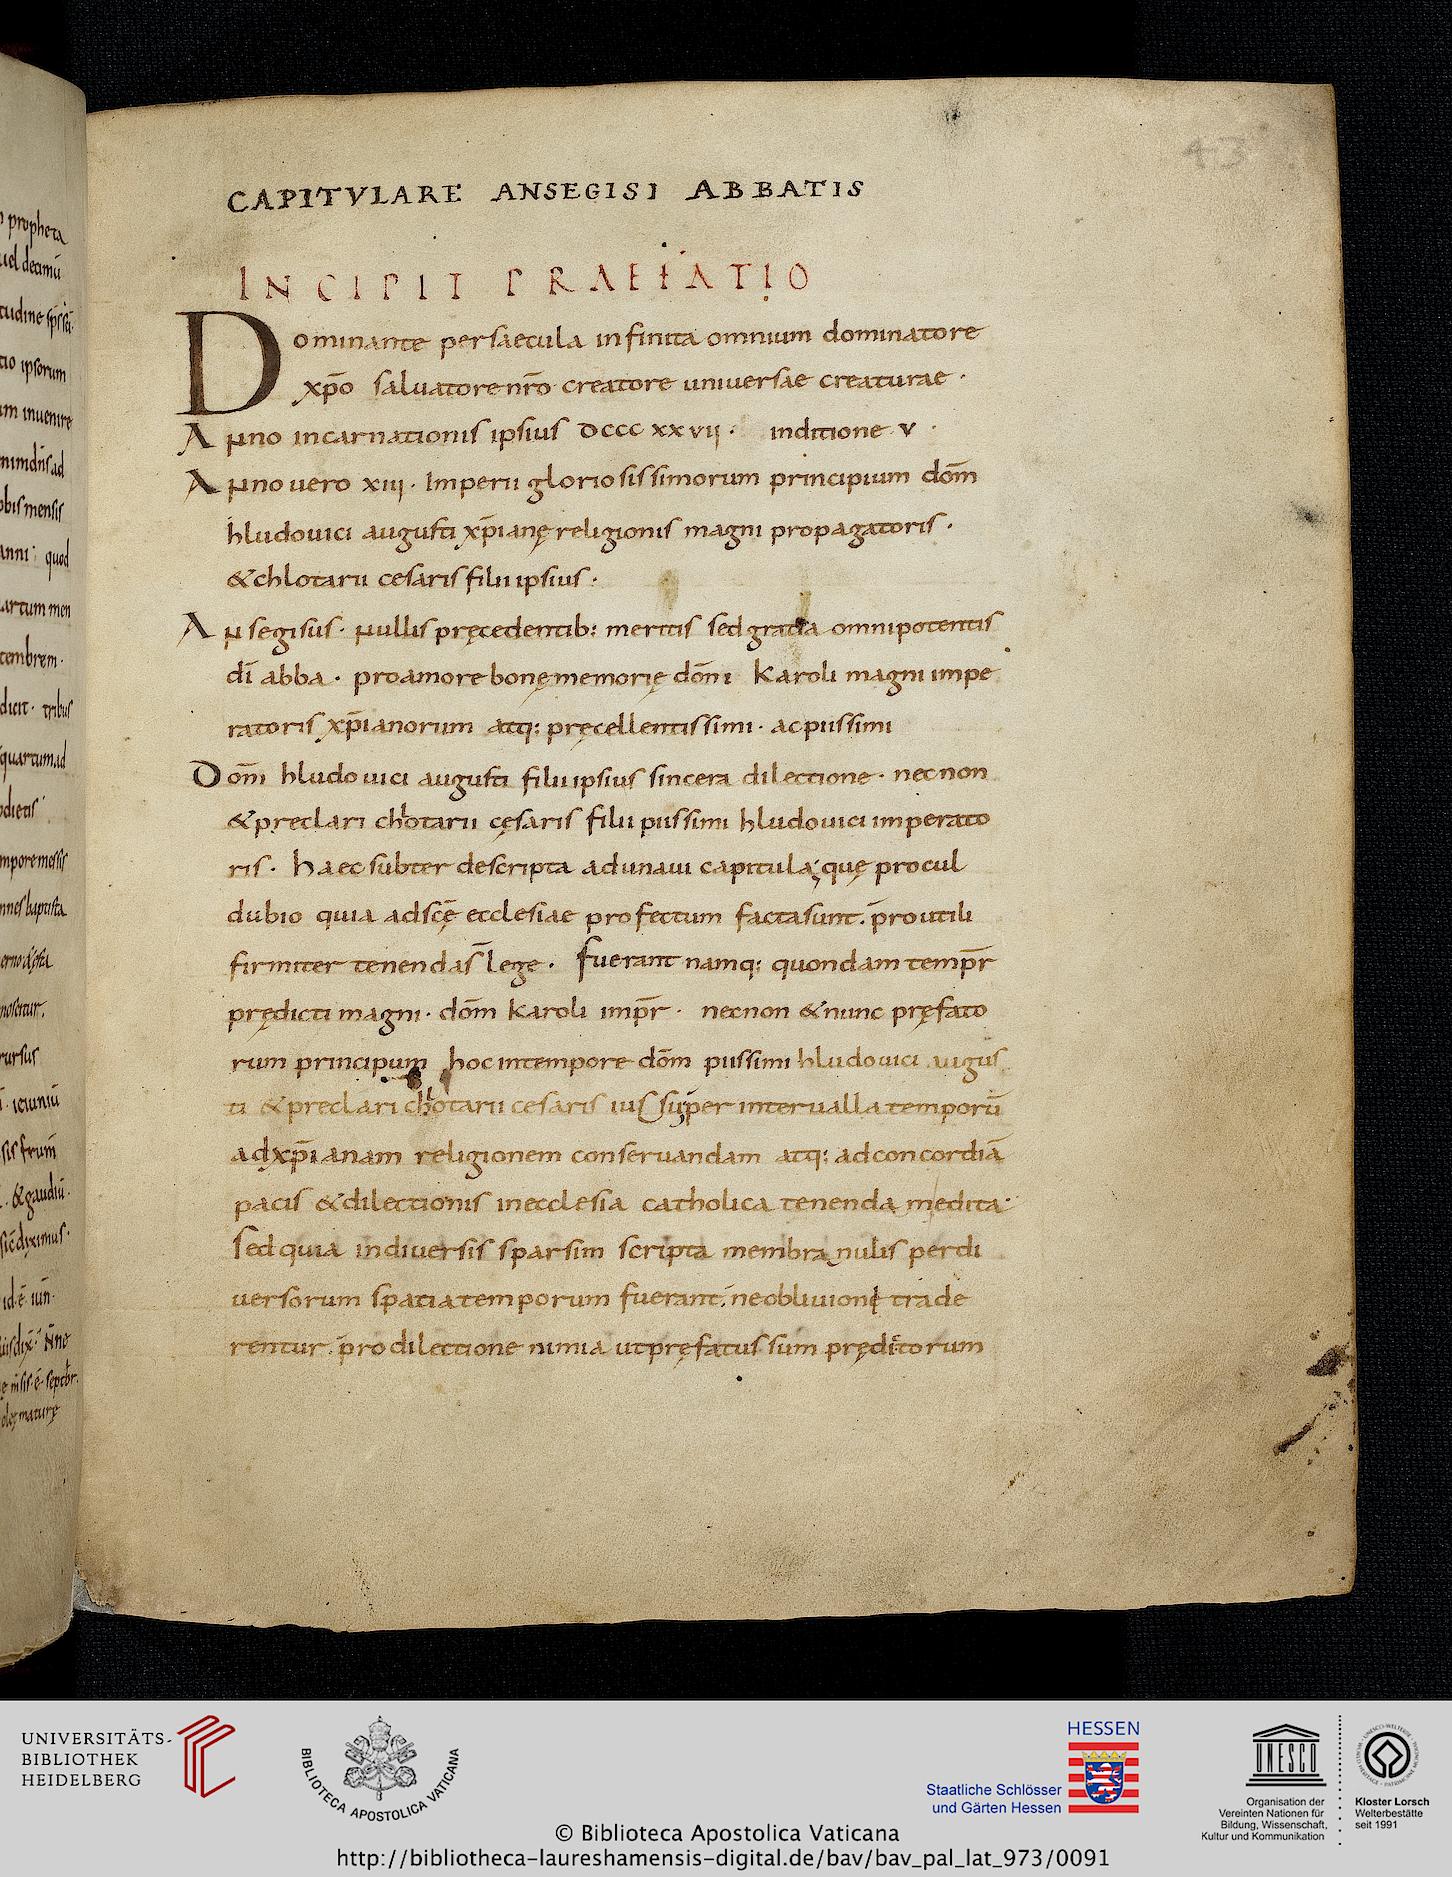 propheta
uel decimū
tudine
tio ipsorum
um inuenire
nimdn̄s ad
obis mensis
anni quod
artum men
tembrem.
dicit. tribus
quartum ad
odietis
mpore messis
nnes baptista
noscitur.
rursus
ieiuniū
sis frum̄
. &gaudiū.
43
CAPITVLARE ANSEGISI ABBATIS
INCIPIT PRAEFATIO
Dominante persaecula infinita omnium dominatore
xp̄o saluatore nr̄o creatore uniuersae creaturae ·
Anno incarnationis ipsius dccc xxvii · inditione v ·
Anno uero xiii · Imperii gloriosissimorum principium dom̄
hludouici augusti xp̄ianę religionis magni propagatoris ·
&chlotarii cesaris filii ipsius ·
Ansegisus · nullis pręcedentib: meritis sed gratia omnipotentis
dī abba · proamore bonę memorię dom̄i Karoli magni impe
ratoris xp̄ianorum atq: pręcellentissimi · ac piissimi
Dom̄i hludouici augusti filii ipsius sincera dilectione · necnon
&preclari chlotarii cęsaris filii piissimi hludouici imperato
ris · haec subter descripta adunaui capitula; quę procul
dubio quia adscę̄ ecclesiae profectum facta sunt. pro utili
firmiter tenendas lege · fuerant namq: quondam temp̄r
prędicti magni · dom̄ karoli imp̄r · necnon &nunc pręfato
rum principum hoc intempore dom̄ piissimi hludouici augus
ti &preclari chlotarii cesaris iussu per interualla temporū
adxp̄ianam religionem conseruandam atq: adconcordiā
pacis &dilectionis inecclesia catholica tenenda medita·
Sed quia indiuersis sparsim scripta membranulis perdi
uersorum spatia temporum fuerant; neobliuionę trade
rentur. pro dilectione nimia utpręfatus sum pręditorum
UNIVERSITÄTS-
BIBLIOTHEK
HEIDELBERG
BIBLIOTECA APOSTOLICA VATICANA
HESSEN
Staatliche Schlösser
und Gärten Hessen
UNESCO
Organisation der
Vereinten Nationen für
Bildung, Wissenschaft,
Kultur und Kommunikation
Kloster Lorsch
Welterbestätte
seit 1991
© Biblioteca Apostolica Vaticana
http://bibliotheca-laureshamensis-digital.de/bav/bav_pal_lat_973/0091